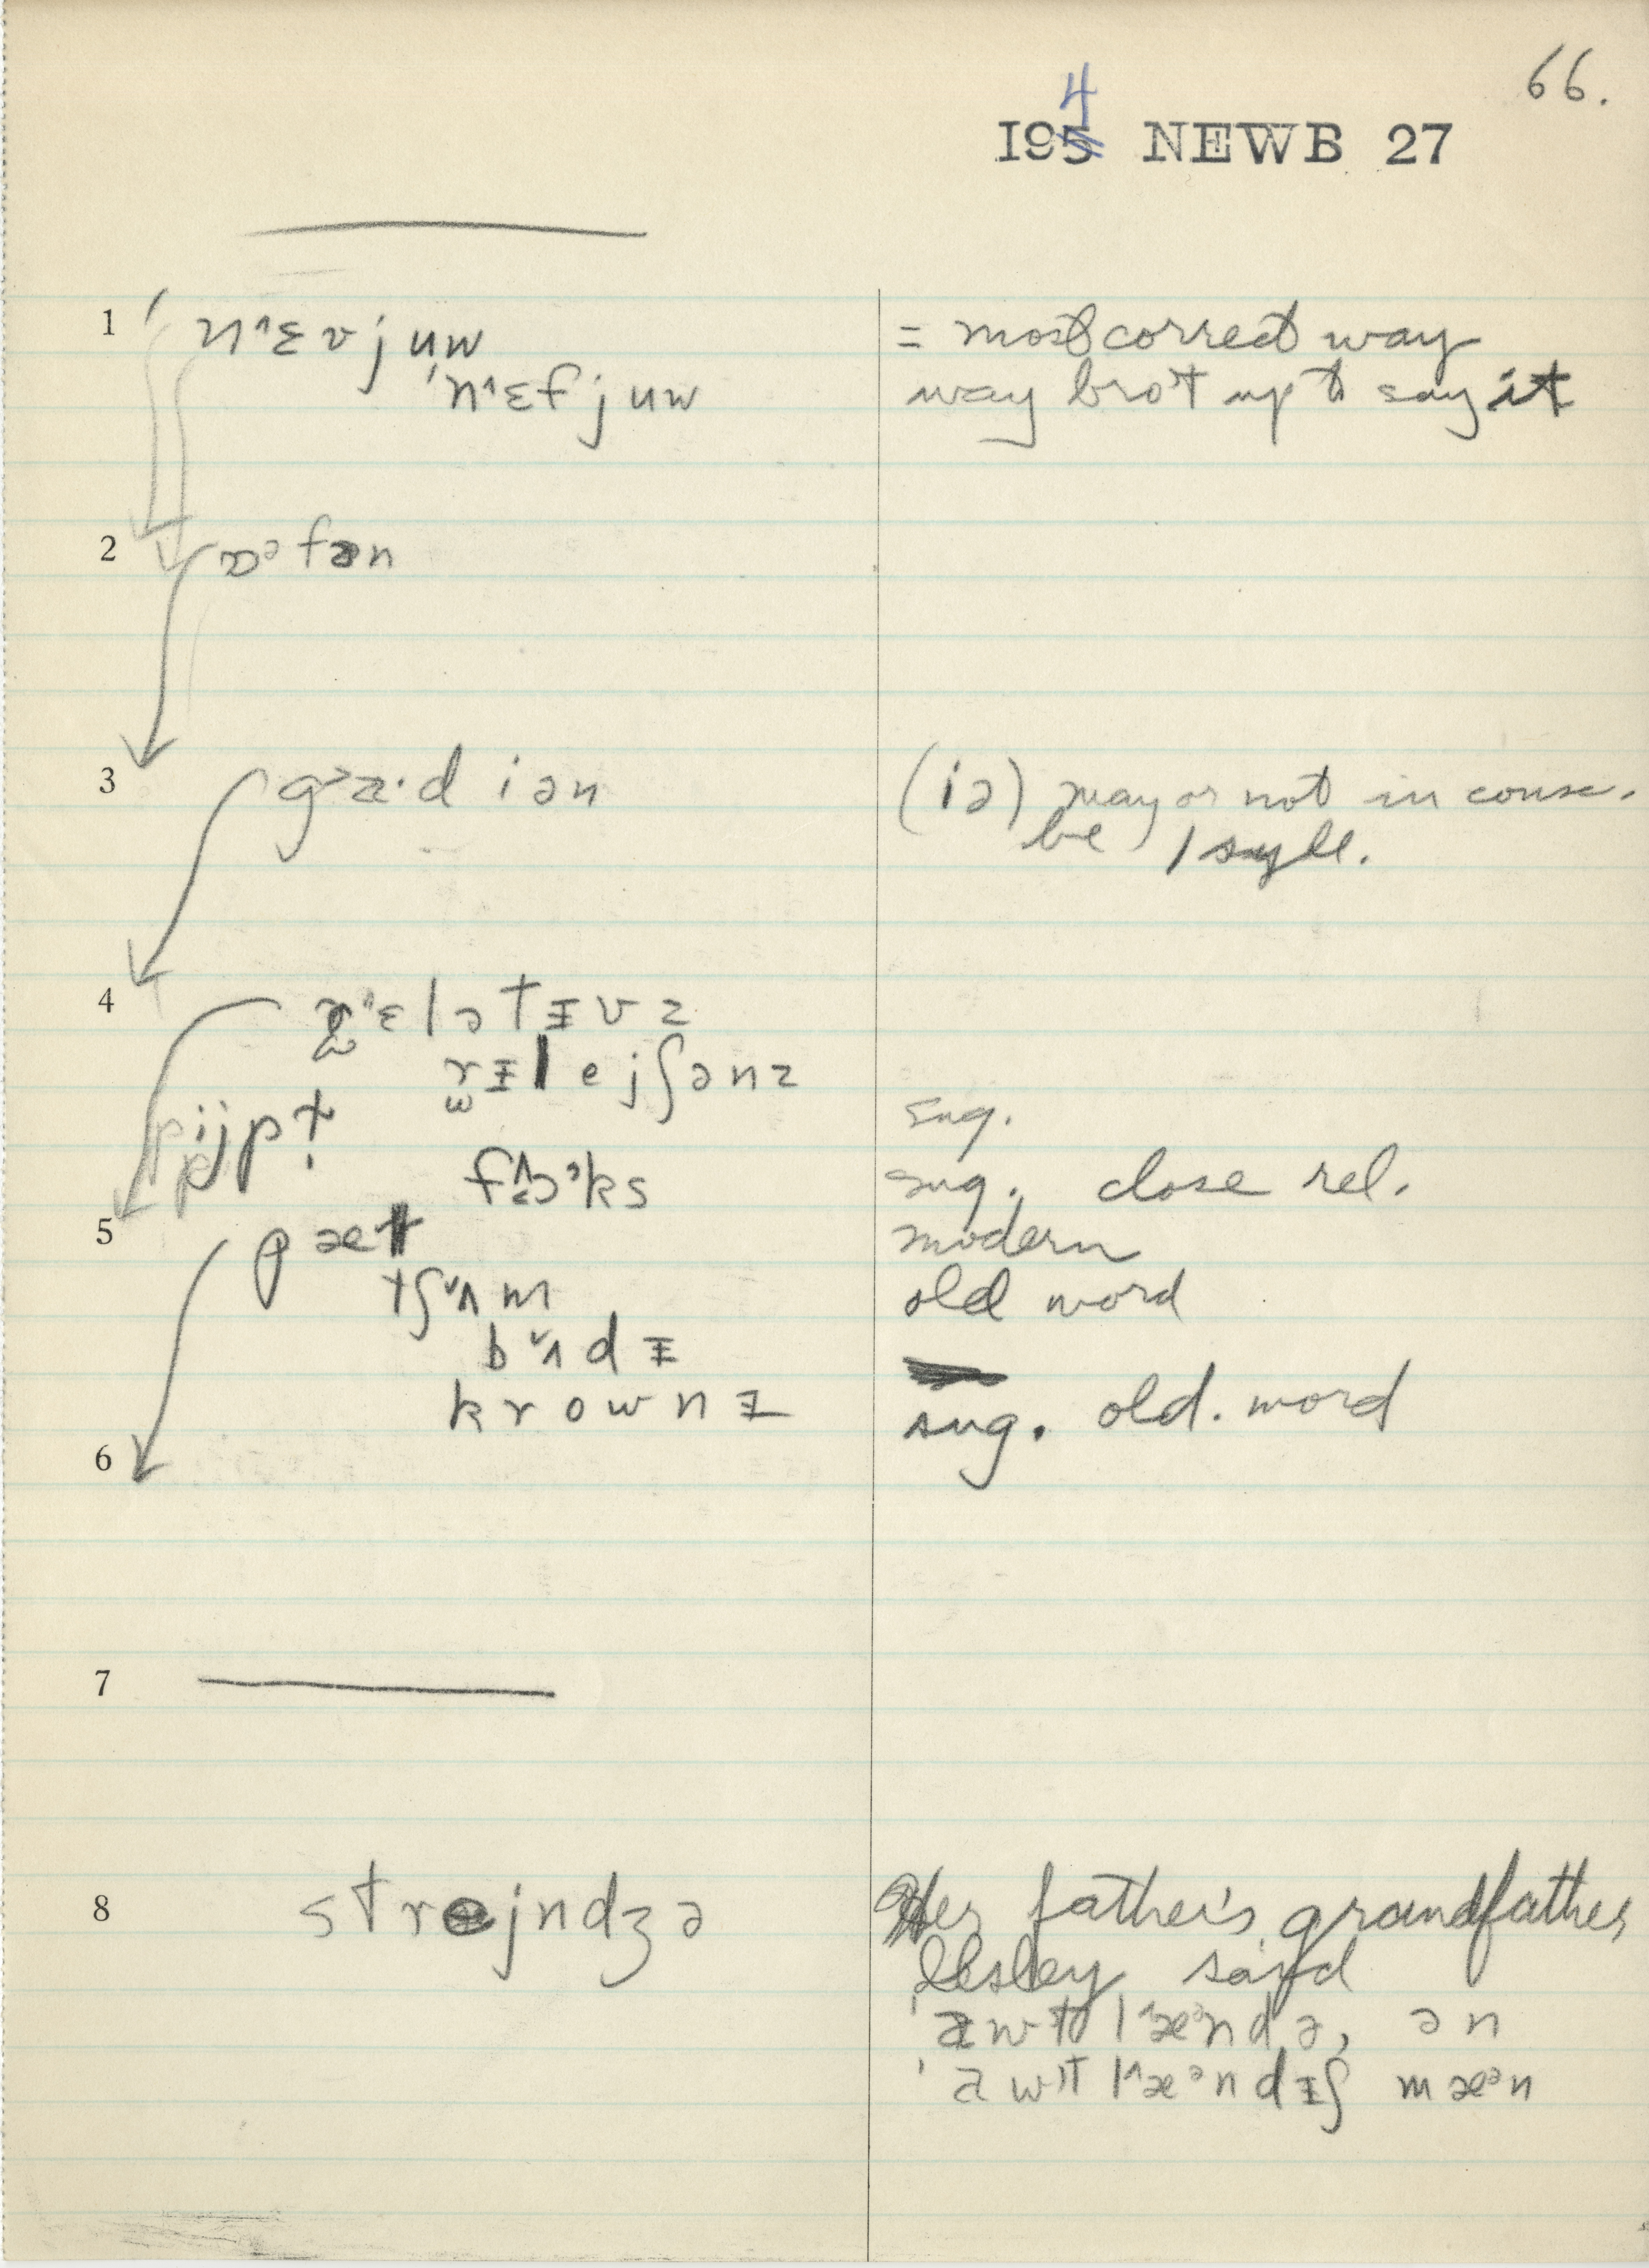 66.
4
195 NEWB 27
1 nˈ^ɛvjuw = most correct way
ˈn^ɛfjuw way bro't up to say it
2 ɒᵊfən
3 ga·diən (iə) may or not in conv.
be 1 syll.
4 r^ɛlətɪvz
rɪlejʃənz
pijpt sug.
fɔᵊks sug. close rel.
5 pæt modern
tʃʌm old word
bʌdɪ
krownɪ sug. old. word
6
7
8 strejndʒə Her father's grandfather
Ilsley said
ˈawtl^æᵊndə, ən
ˈawtl^æᵊndɪʃ mæᵊn